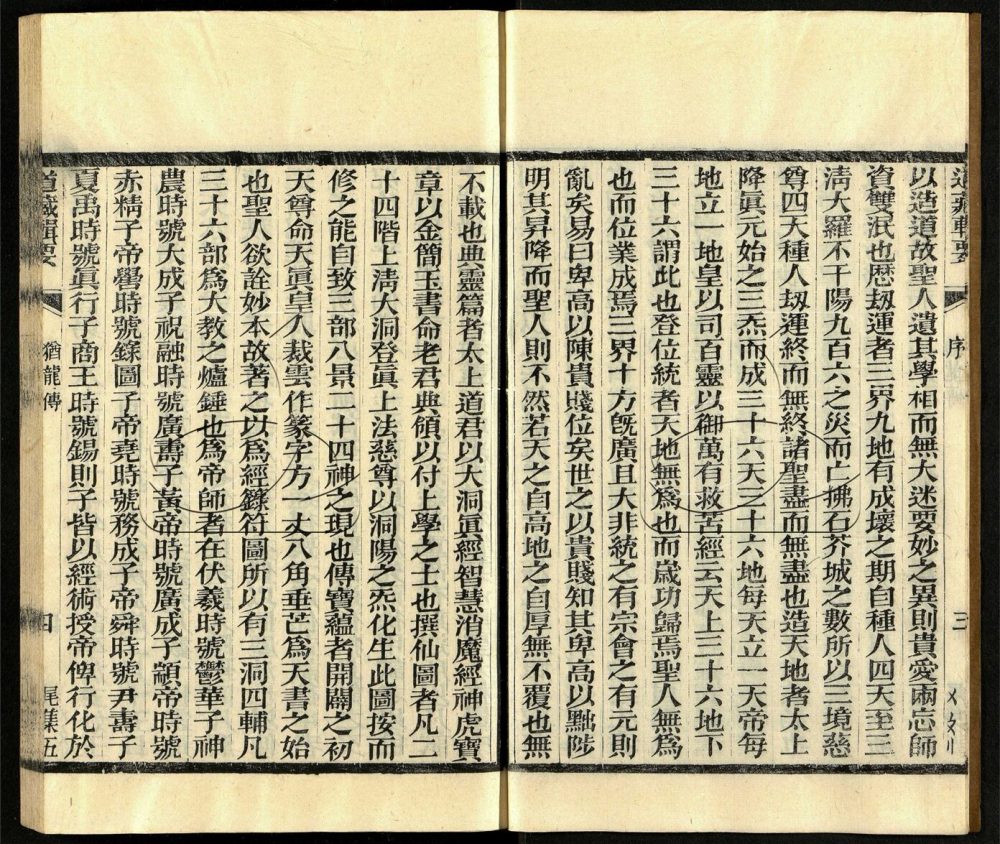 道藏輯要 序 三
以造道故聖人遺其學相而無大迷要妙之異則貴愛兩忘師
資雙泯也歷刼運者三界九地有成壞之期自種人四天至三
淸大羅不干陽九百六之災而亡拂石芥城之數所以三境慈
尊四天種人刼運終而無終諸聖盡而無盡也造天地者太上
降眞元始之三炁而成三十六天三十六地每天立一天帝每
地立一地皇以司百靈以御萬有救苦經云天上三十六地下
三十六謂此也登位統者天地無爲也而歲功歸焉聖人無爲
也而位業成焉三界十方旣廣且大非統之有宗會之有元則
亂矣易曰卑高以陳貴賤位矣世之以貴賤知其卑高以黜陟
明其昇降而聖人則不然若天之自高地之自厚無不覆也無
不載也典靈篇者太上道君以大洞眞經智慧消魔經神虎寶
章以金簡玉書命老君典領以付上學之士也撰仙圖者凡二
十四階上淸大洞登眞上法慈尊以洞陽之炁化生此圖按而
修之能自致三部八景二十四神之現也傳寶蘊者開闢之初
天尊命天眞皇人裁雲作篆字方一丈八角垂芒爲天書之始
也聖人欲詮妙本故著之以爲經籙符圖所以有三洞四輔凡
三十六部爲大教之爐錘也爲帝師者在伏羲時號鬱華子神
農時號大成子祝融時號廣壽子黃帝時號廣成子顓帝時號
赤精子帝嚳時號錄圖子帝堯時號務成子帝舜時號尹壽子
夏禹時號眞行子商王時號錫則子皆以經術授帝俾行化於
道藏輯要 猶龍傳 四 尾集五